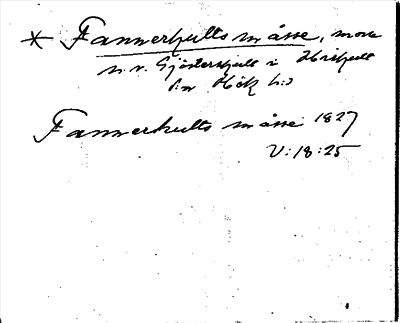 * Fannerhults måsse, mosse
n.v. Gjödershult i Hvihult
sn Hök hd
Fannerhults måsse 1827
V:18:25